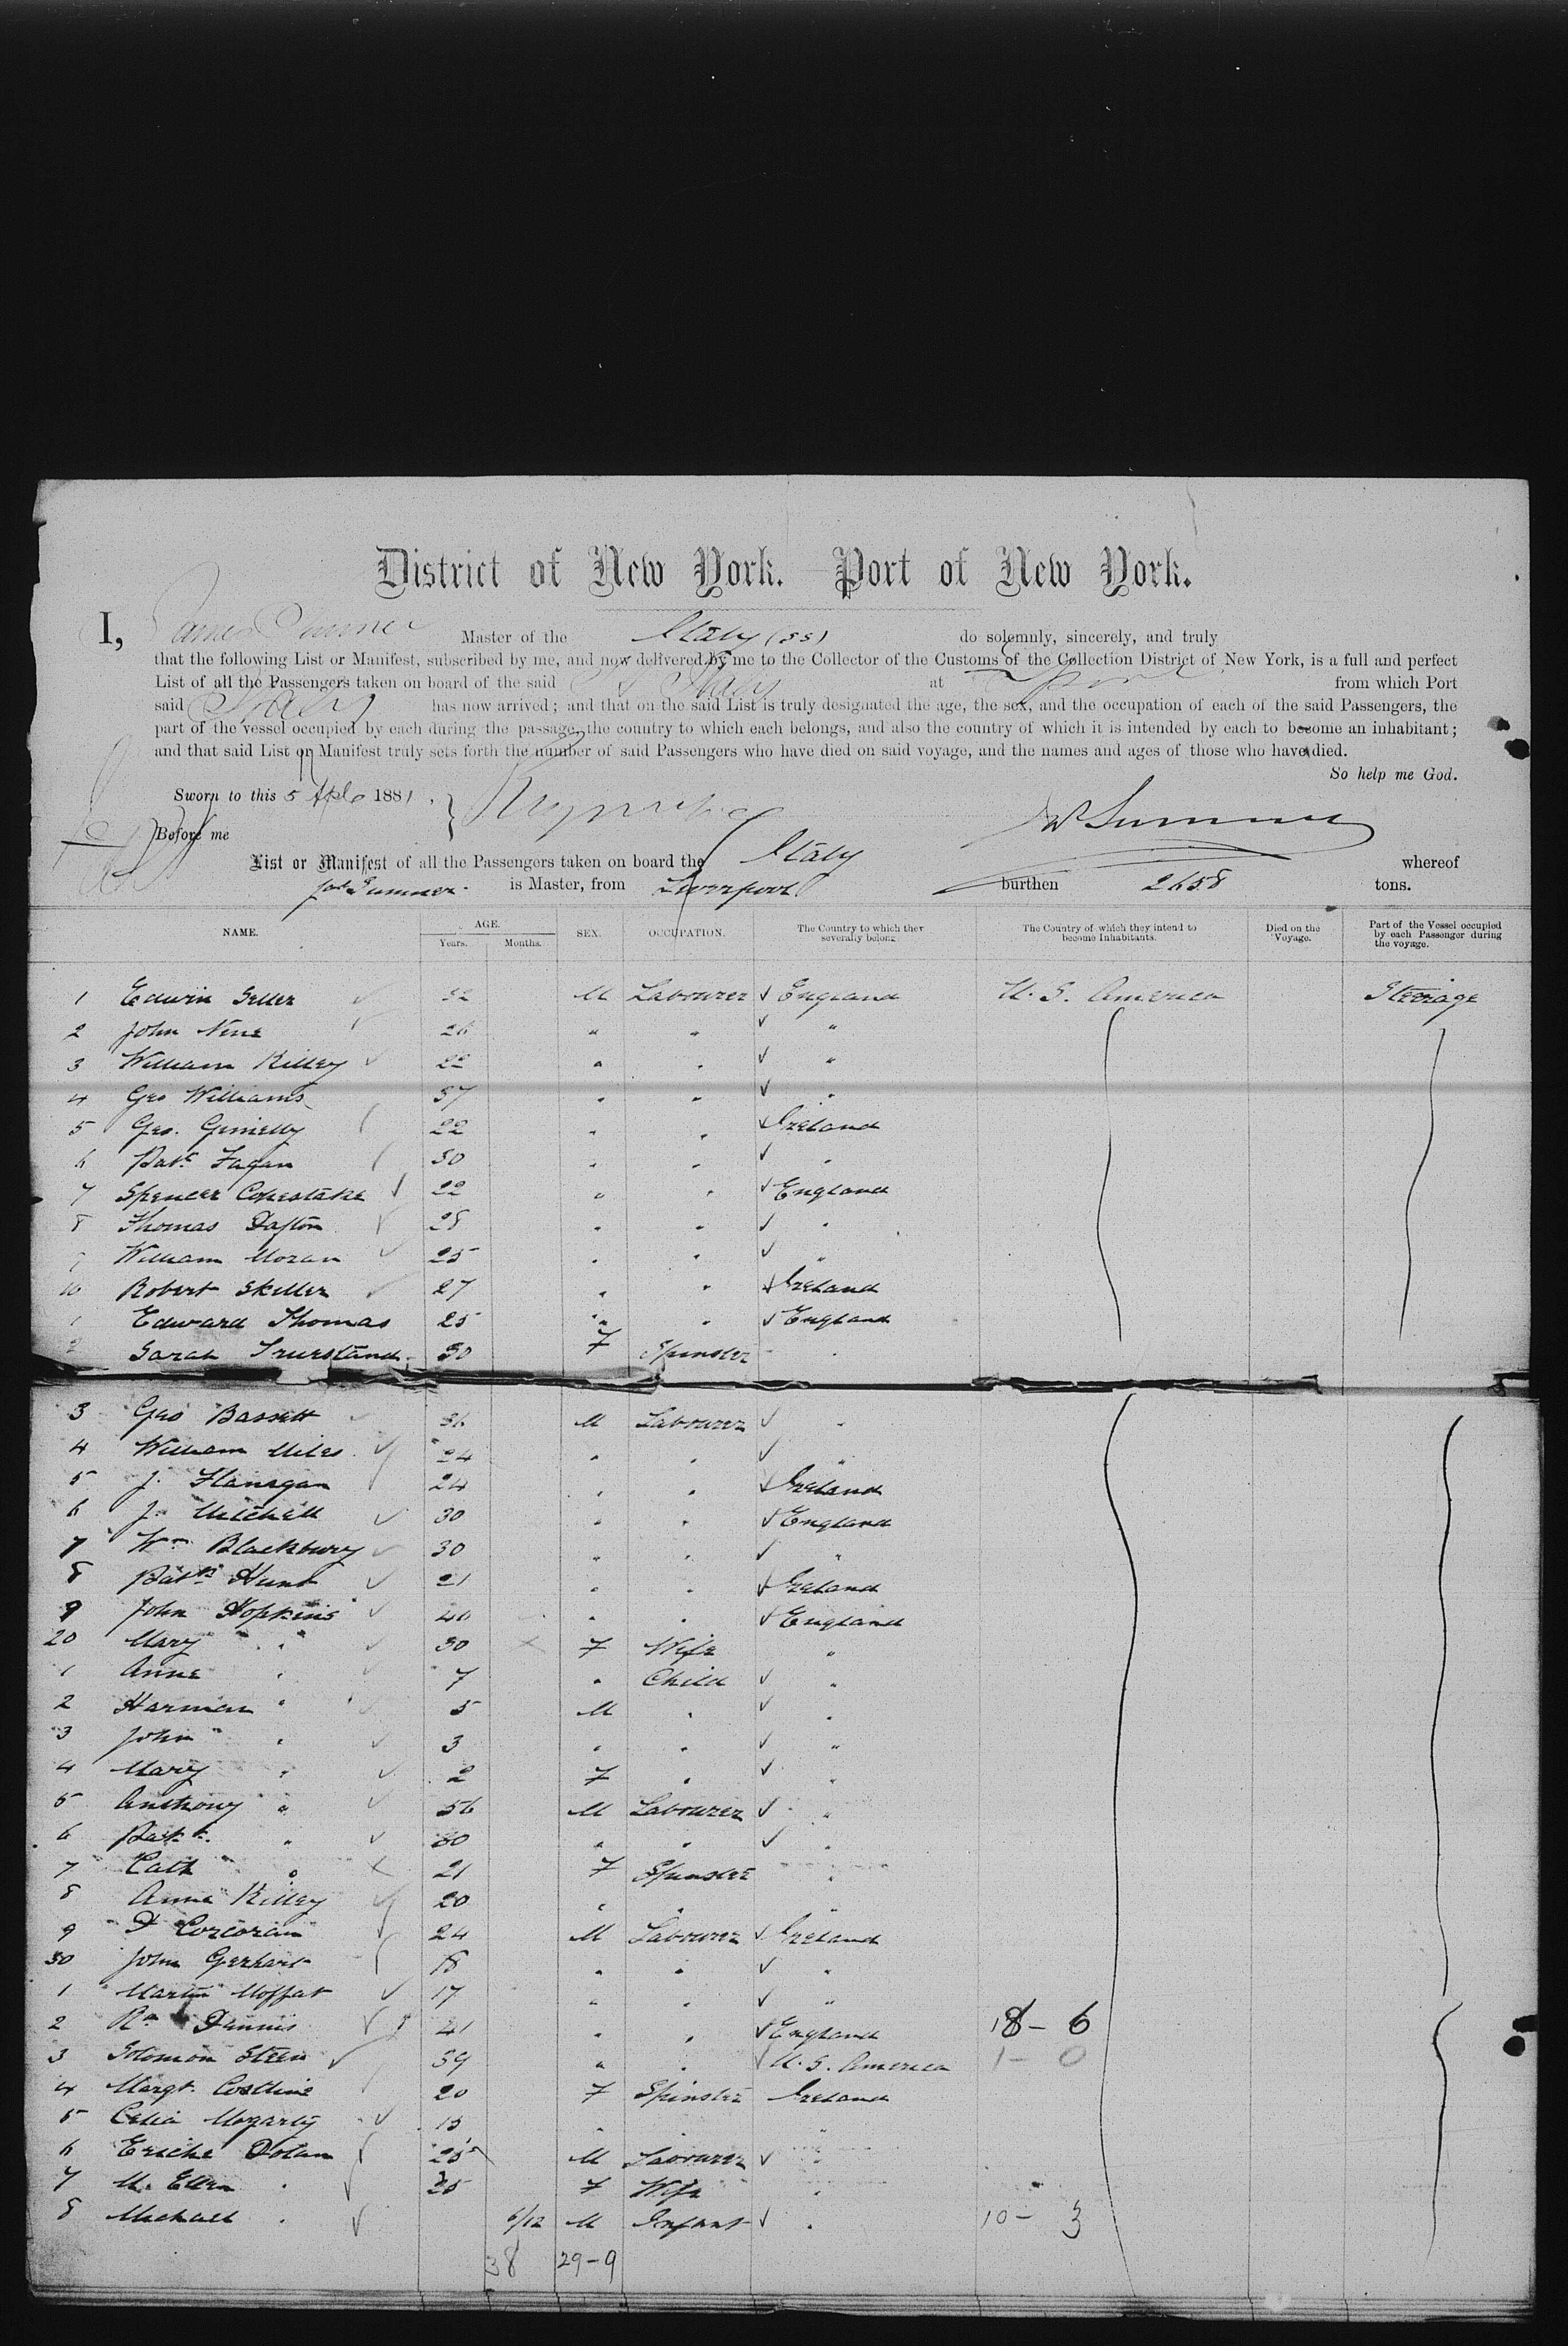 District of New York. Port of New York.
I, James Sumner Master of the Italy (SS) do solemnly, sincerely, and truly
that the following List or Manifest, subscribed by me, and now delivered by me to the Collector of the Customs of the Collection District of New York, is a full and perfect
List of all the Passengers taken on board of the said SS Italy at from which Port
said Italy has now arrived; and that on the said List is truly designated the age, the sex, and the occupation of each of the said Passengers, the
part of the vessel occupied by each during the passage, the country to which each belongs, and also the country of which it is intended by each to become an inhabitant;
and that said List or Manifest truly sets forth the number of said Passengers who have died on said voyage, and the names and ages of those who have died.
So help me God.
Sworn to this 5 1881 Sumner
Before me
List or Manifest of all the Passengers taken on board the Italy whereof
Sumner is Master, from Liverpool burthen 2658 tons.
NAME. AGE. Years. Months. SEX. OCCUPATION. The Country to which they severally belong The Country of which they intend to become Inhabitants. Died on the Voyage. Part of the Vessel occupied by each Passenger during the voyage.
1 Edwin 32 M Labourer England U.S. America Steerage
2 John 26 " " "
3 William Killey 22 " " "
4 Geo Williams 37 " " "
5 Geo. 22 " " Ireland
6 Patk Fagan 50 " " "
7 Spencer Copestake 22 " " England
8 Thomas 28 " " "
9 William Moran 25 " " "
10 Robert Skeller 27 " " Ireland
1 Edward Thomas 25 " " England
2 Sarah 30 F Spinster "
3 Geo Bassett 36 M Labourer "
4 William Miles 24 " " "
5 J. Flanagan 24 " " Ireland
6 J. Mitchell 30 " " England
7 Wm Blackbury 30 " " "
8 Patk Hunt 21 " " Ireland
9 John Hopkins 40 " " England
20 Mary " 30 F Wife "
1 Anne " 7 " Child "
2 Harman " 5 M " "
3 John " 3 " " "
4 Mary " 2 F " "
5 Anthony " 56 M Labourer "
6 Patk " 30 " " "
7 Cath " 21 F Spinster "
8 Anne Killey 20 " " "
9 P Corcoran 24 M Labourer Ireland
30 John Gerhart 18 " " "
1 Martin Moffat 17 " " "
2 Rd Dennis 41 " " England 18 - 6
3 Solomon Steen 39 " " U.S. America 1 - 0
4 Margt. Costline 20 F Spinster Ireland
5 Celia 15 " " "
6 Dolan 25 M Labourer "
7 M. Ellen " 25 F Wife "
8 Michael " 6/12 M Infant " 10 - 3
38 29-9